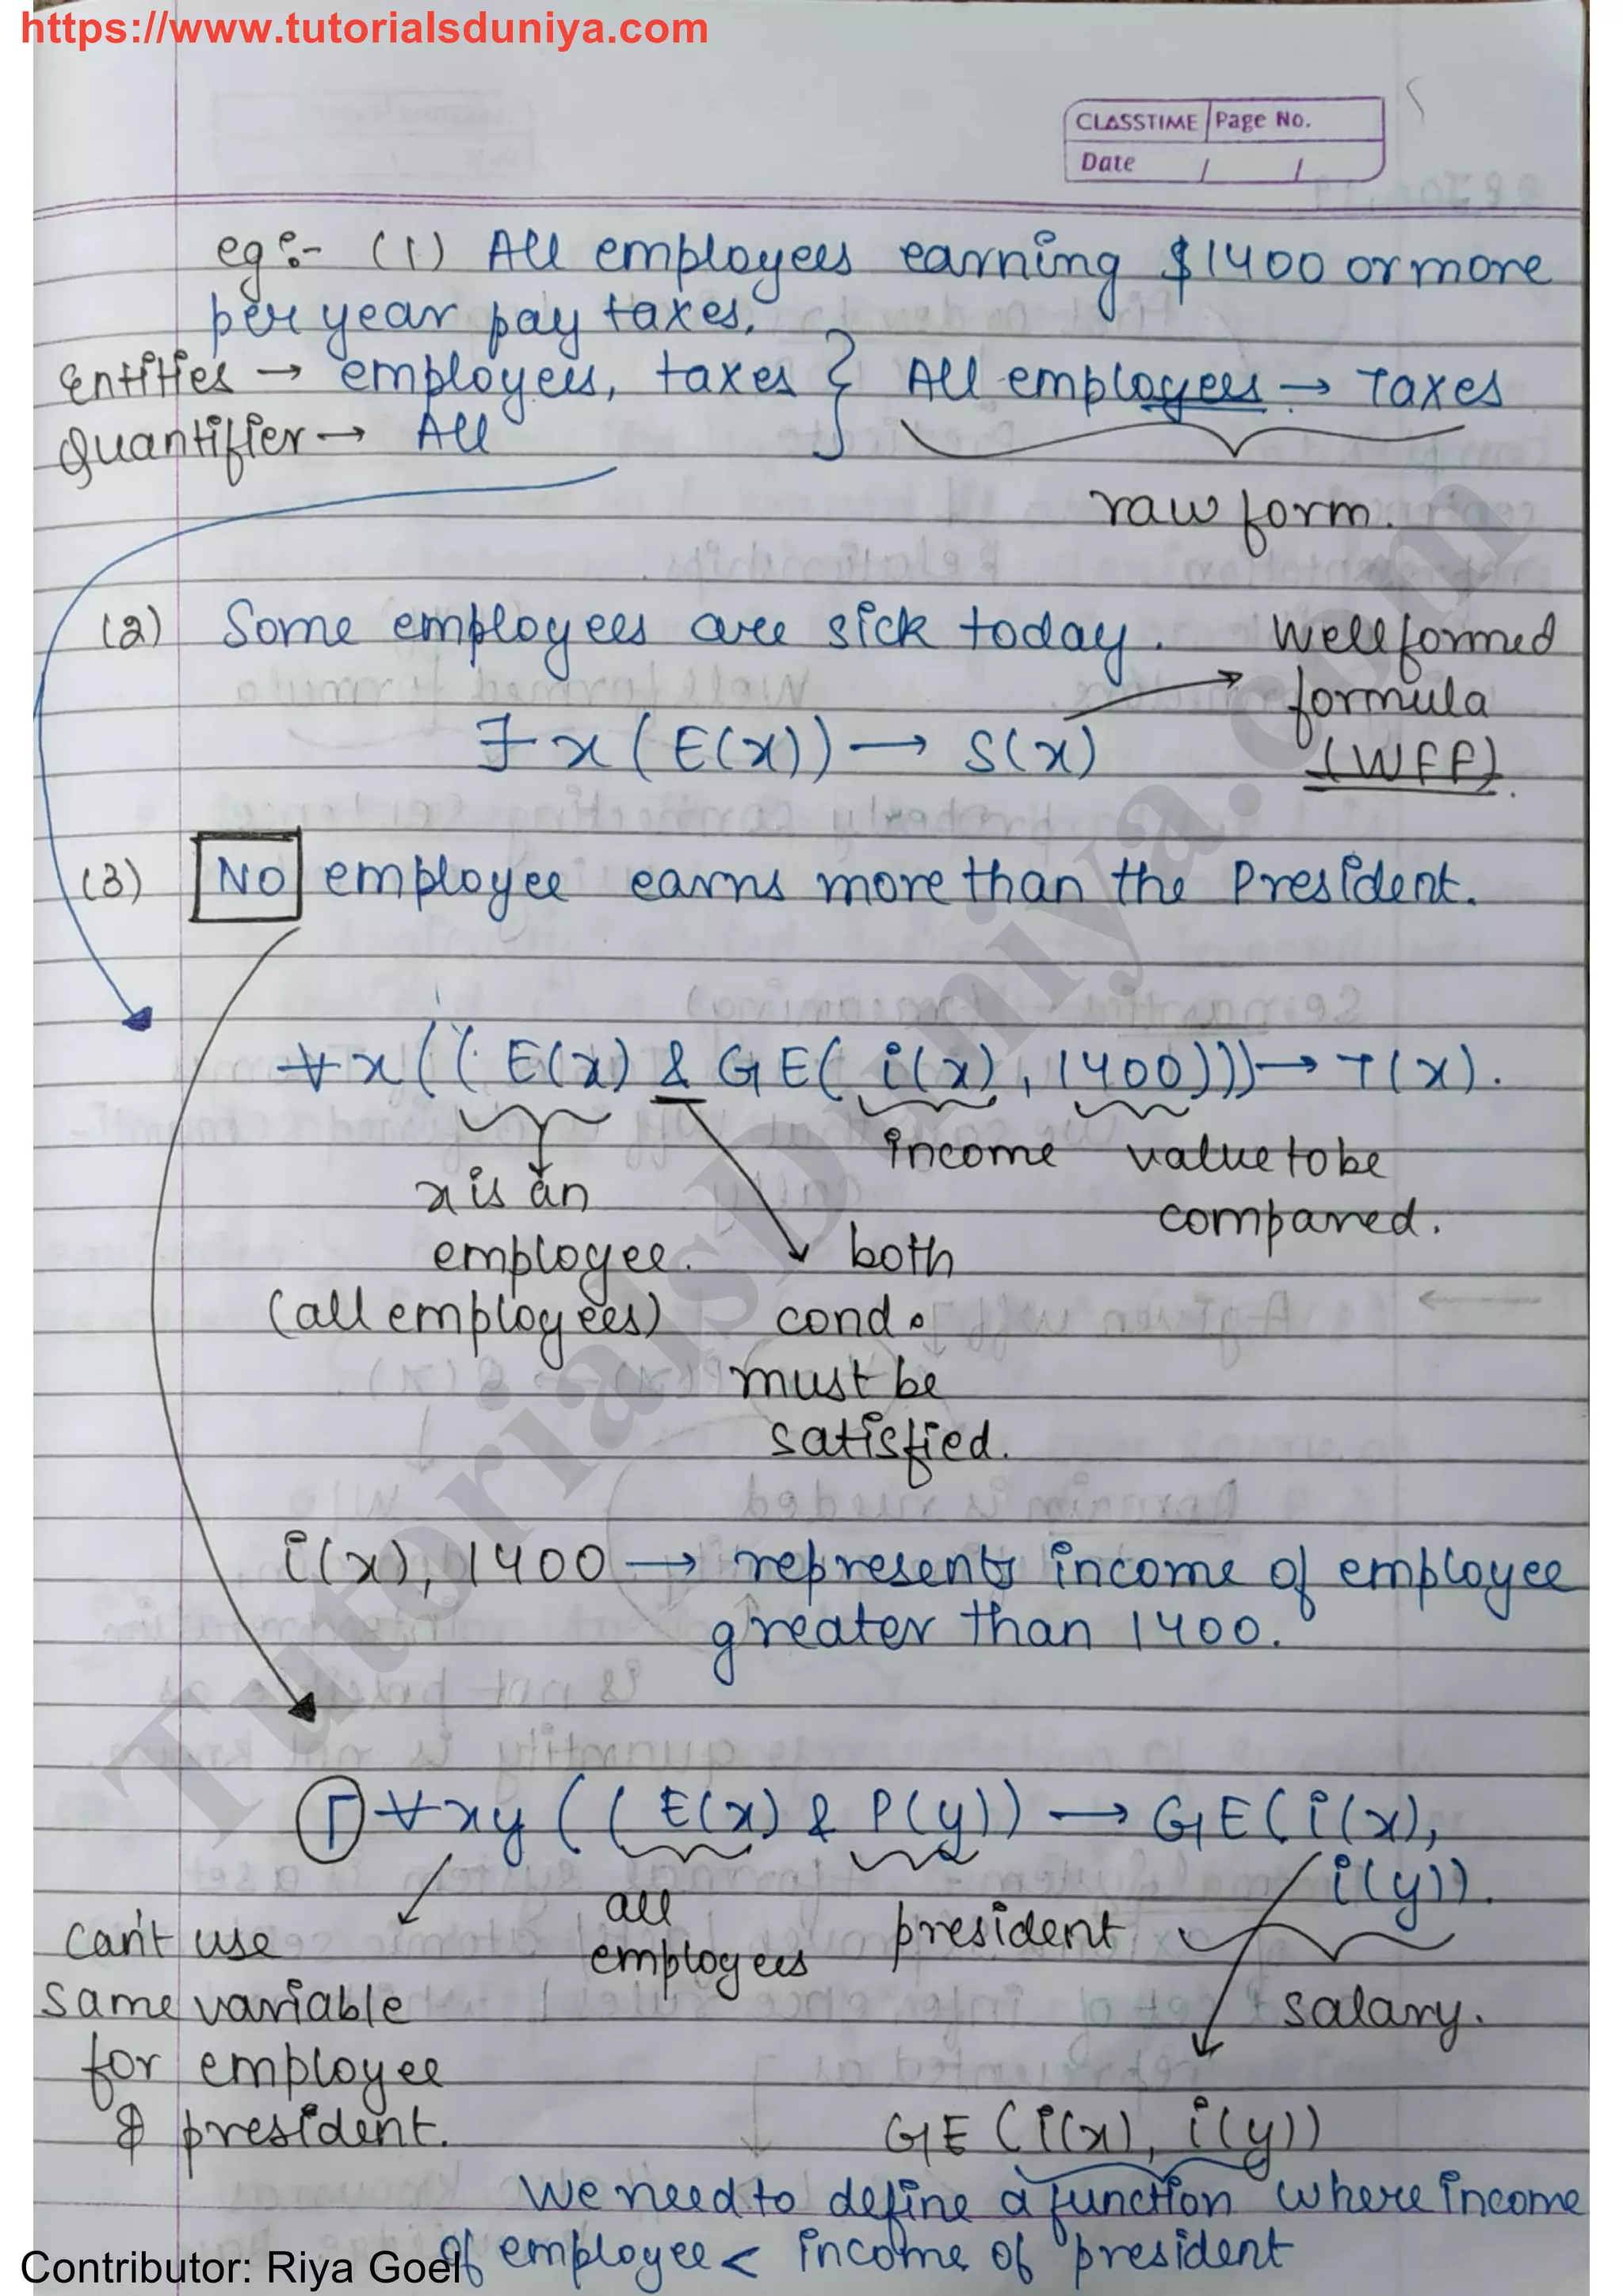 https://www.tutorialsduniya.com
CLASSTIME Page No.
Date / /
eg:- (1) All employees earning $1400 or more
per year pay taxes.
Entities → employees, taxes } All employees → Taxes
Quantifier → All
raw form.
(2) Some employees are sick today.
Well formed
formula
(WFF).
∃x (E(x)) → S(x)
(3) NO employee earns more than the President.
∀x ((E(x) & GE(i(x), 1400))) → T(x).
income value to be
compared.
x is an
employee.
(all employees)
both
cond.
must be
satisfied.
i(x), 1400 → represents income of employee
greater than 1400.
Γ ∀xy ((E(x) & P(y)) → GE(i(x),
i(y)).
all
employees
president
salary.
can't use
same variable
for employee
& president.
GE (i(x), i(y))
We need to define a function where income
of employee < income of president
Contributor: Riya Goel
TutorialsDuniya.com